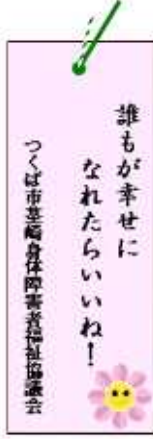 誰もが幸せに
なれたらいいね！
つくば市茎崎身体障害者福祉協議会